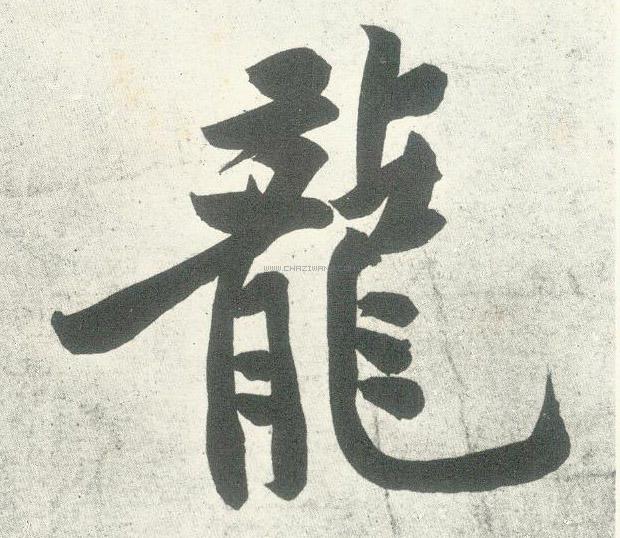 龍
WWW.CHAZIWANG.COM